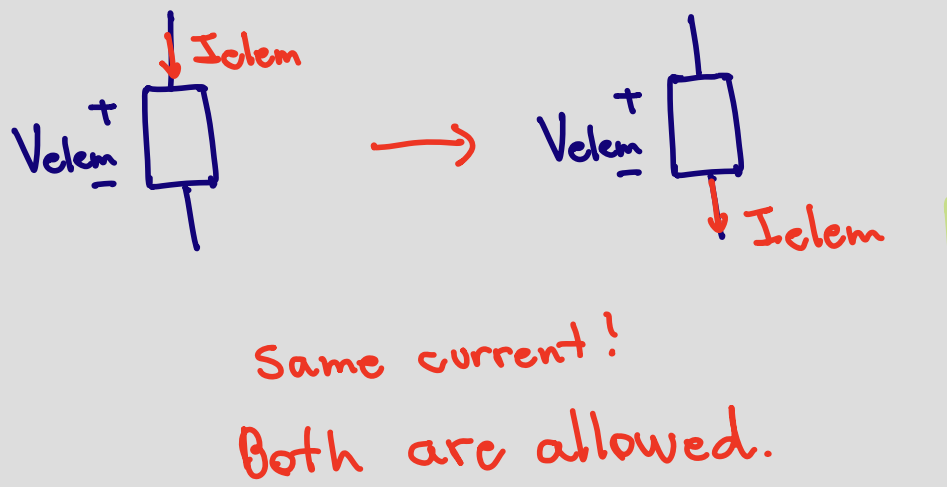 Ielem
+
Velem
-
+
Velem
-
Ielem
Same current!
Both are allowed.